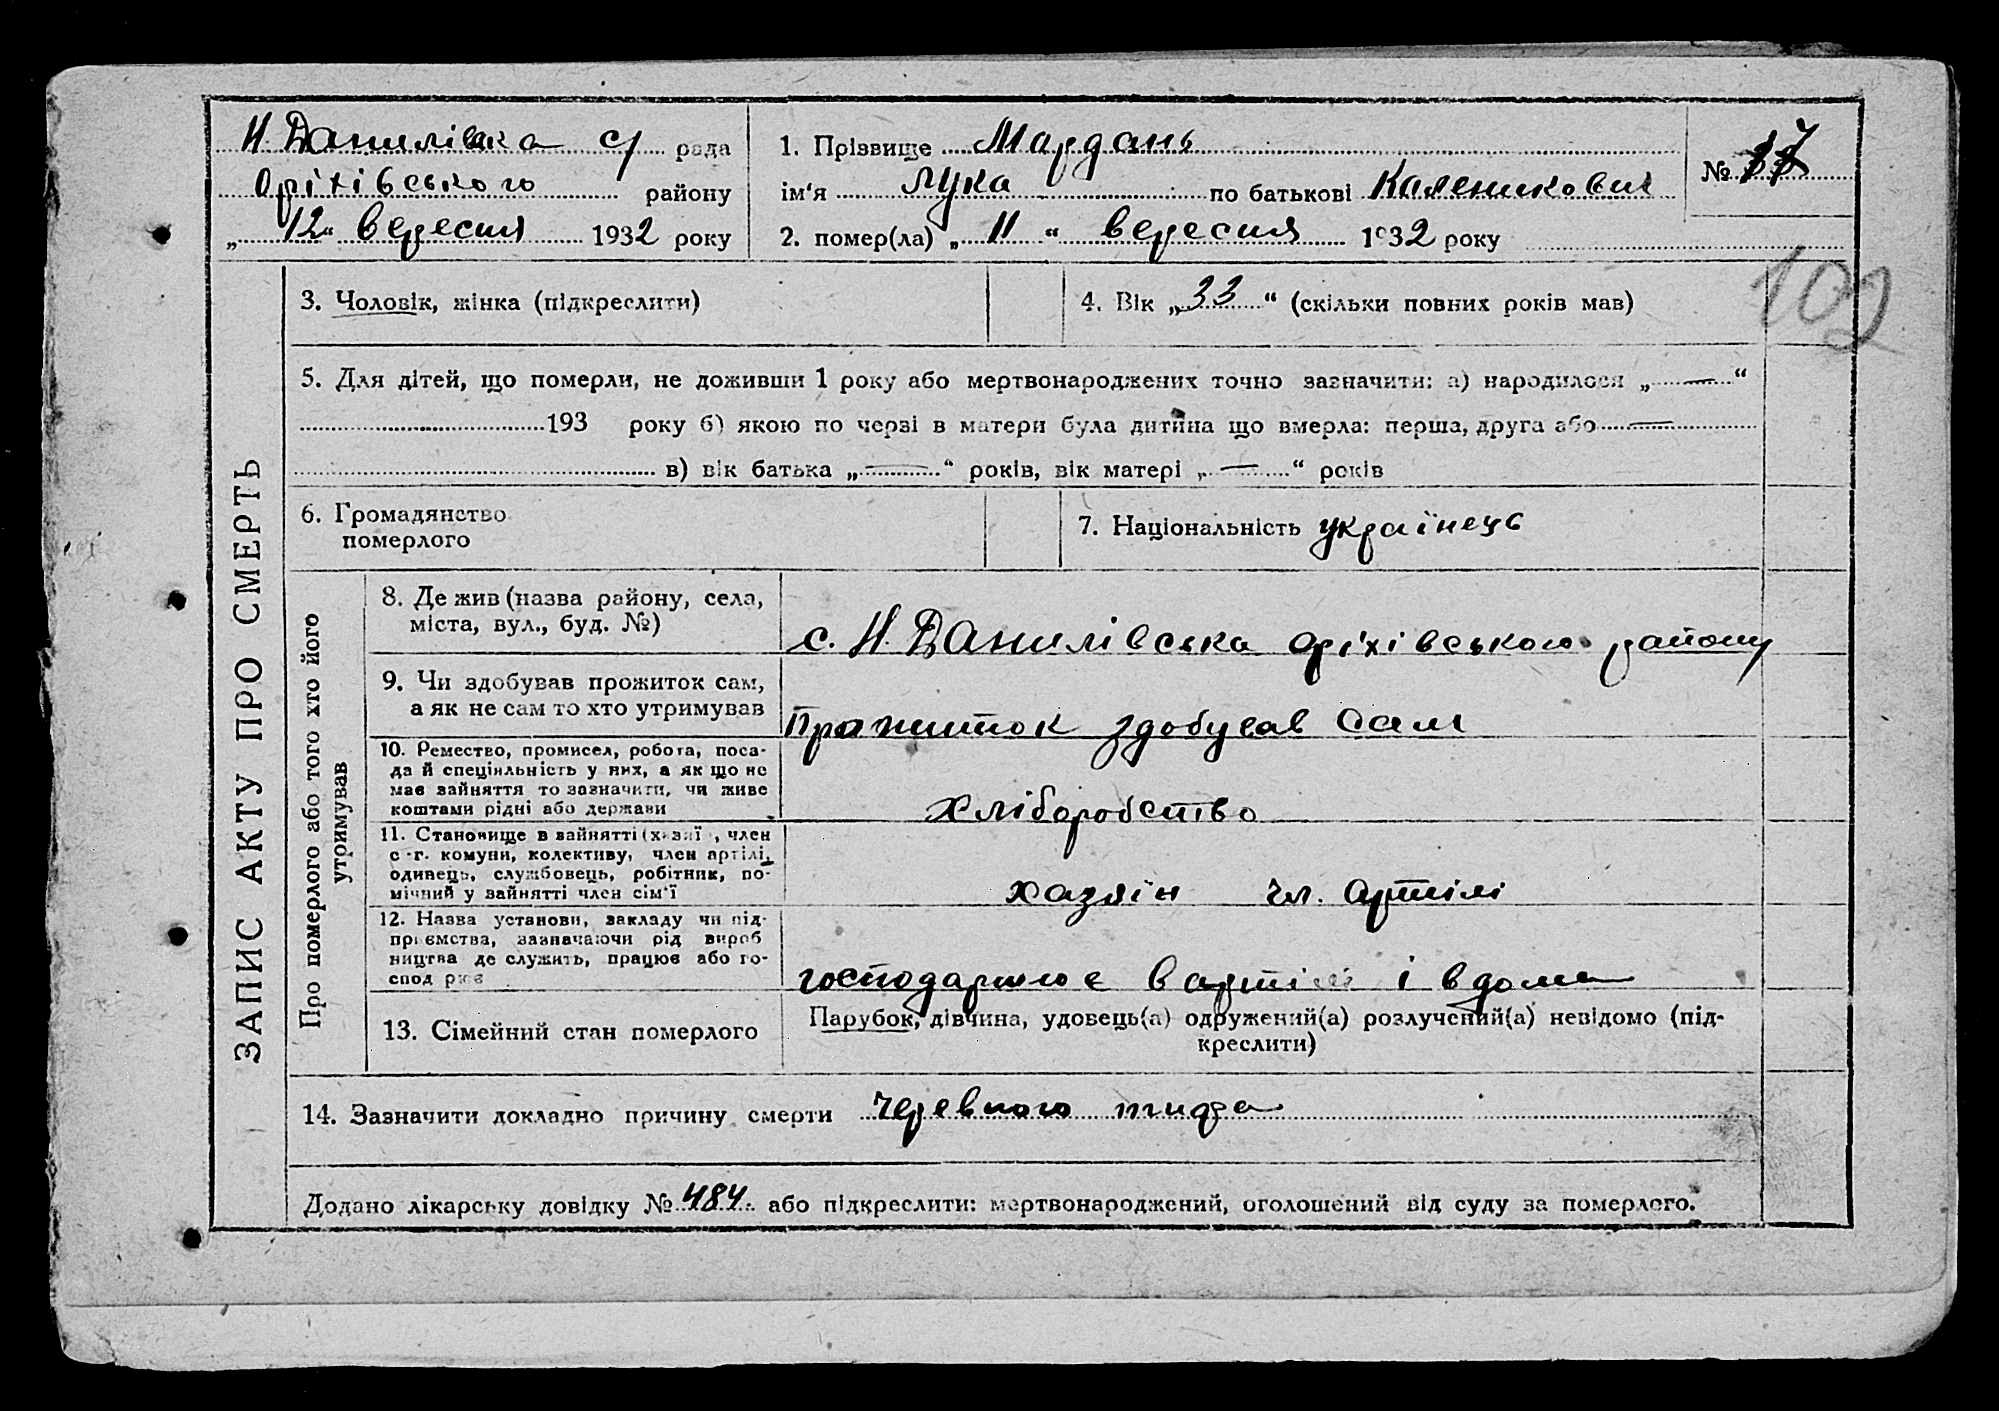 Н. Данилівка с/ рада
Оріхівського району
„ 12 “ вересня 1932 року
1. Прізвище Мардань
ім'я Лука по батькові Каленикович
2. помер(ла) „ 11 “ вересня 1932 року
№ 17
102
ЗАПИС АКТУ ПРО СМЕРТЬ
3. Чоловік, жінка (підкреслити)
4. Вік „ 33 “ (скільки повних років мав)
5. Для дітей, що померли, не доживши 1 року або мертвонароджених точно зазначити: а) народилося „ — “
193 року б) якою по черзі в матери була дитина що вмерла: перша, друга або —
в) вік батька „ — “ років, вік матері „ — “ років
6. Громадянство
померлого
7. Національність українець
Про померлого або того хто його
утримував
8. Де жив (назва району, села,
міста, вул., буд. №)
с. Н. Данилівська оріхівського району
9. Чи здобував прожиток сам,
а як не сам то хто утримував
Прожиток здобував сам
10. Ремество, промисел, робота, поса-
да й спеціяльність у них, а як що не
має зайняття то зазначити, чи живе
коштами рідні або держави
хліборобство
11. Становище в зайнятті (хазяї , член
с.-г. комуни, колективу, член артілі,
одинець, службовець, робітник, по-
мічний у зайнятті член сім'ї
хазяін чл. артілі
12. Назва установи, закладу чи під-
приємства, зазначаючи рід вироб
ництва де служить, працює або го-
спод рює
господарює в артілі і вдома
13. Сімейний стан померлого
Парубок, дівчина, удовець(а) одружений(а) розлучений(а) невідомо (під-
креслити)
14. Зазначити докладно причину смерти черевного тифа
Додано лікарську довідку № 484 або підкреслити: мертвонароджений, оголошений від суду за померлого.